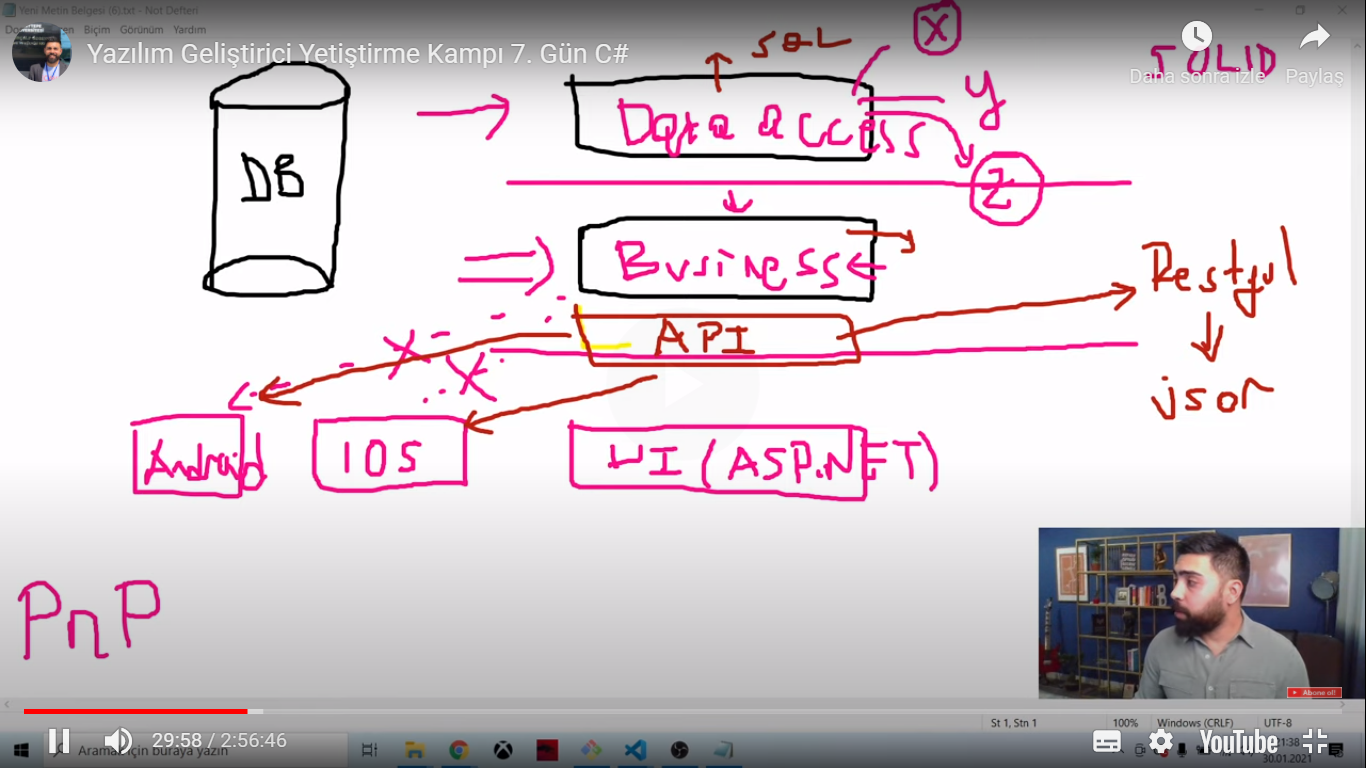 Yeni Metin Belgesi (6).txt - Not Defteri
Biçim Görünüm Yardım
Yazılım Geliştirici Yetiştirme Kampı 7. Gün C#
Daha sonra izle Paylaş
SQL
X
SOLID
Data access
y
Z
DB
Business
API
Restful
json
Android
IOS
UI (ASP.NET)
PnP
Abone ol!
St 1, Stn 1
100%
Windows (CRLF)
UTF-8
29:58 / 2:56:46
Aramak için buraya yazın
YouTube
21:38
30.01.2021